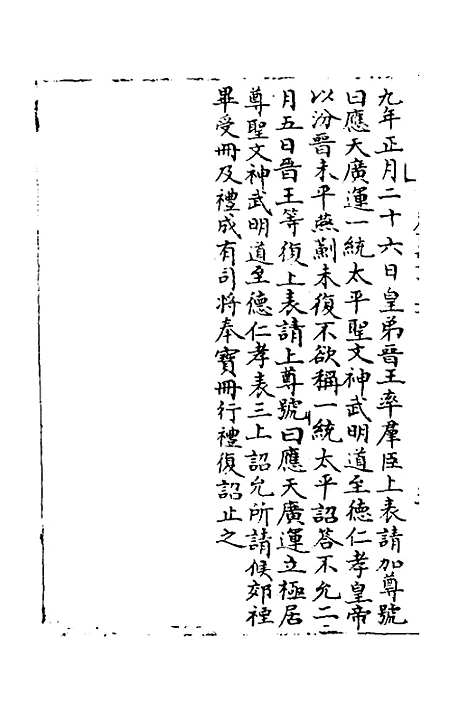 九年正月二十六日皇弟晉王率羣臣上表請加尊號
曰應天廣運一統太平聖文神武明道至德仁孝皇帝
以汾晉未平燕薊未復不欲稱一統太平詔答不允二
月五日晉王等復上表請上尊號曰應天廣運立極居
尊聖文神武明道至德仁孝表三上詔允所請候郊禋
畢受冊及禮成有司將奉寶冊行禮復詔止之